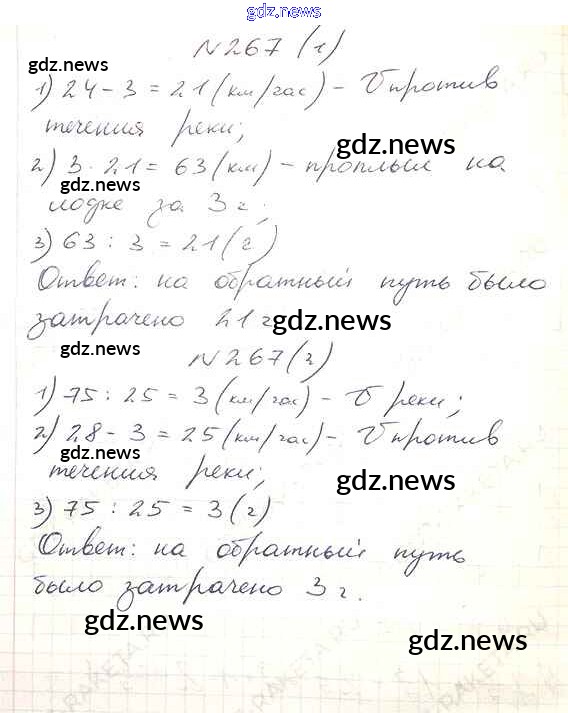 gdz.news
N267(1)
gdz.news
1) 24 - 3 = 21 (км/час) - V против
течения реки;
gdz.news
2) 3 · 21 = 63 (км) - проплыл на
gdz.news
лодке за 3 г;
3) 63 : 3 = 21 (г)
Ответ: на обратный путь было
затрачено 21 г
gdz.news
gdz.news
N267(2)
1) 75 : 25 = 3 (км/час) - V реки;
2) 28 - 3 = 25 (км/час) - V против
gdz.news
течения реки;
gdz.news
3) 75 : 25 = 3 (г)
Ответ: на обратный путь
было затрачено 3 г.
gdz.news
gdz.news